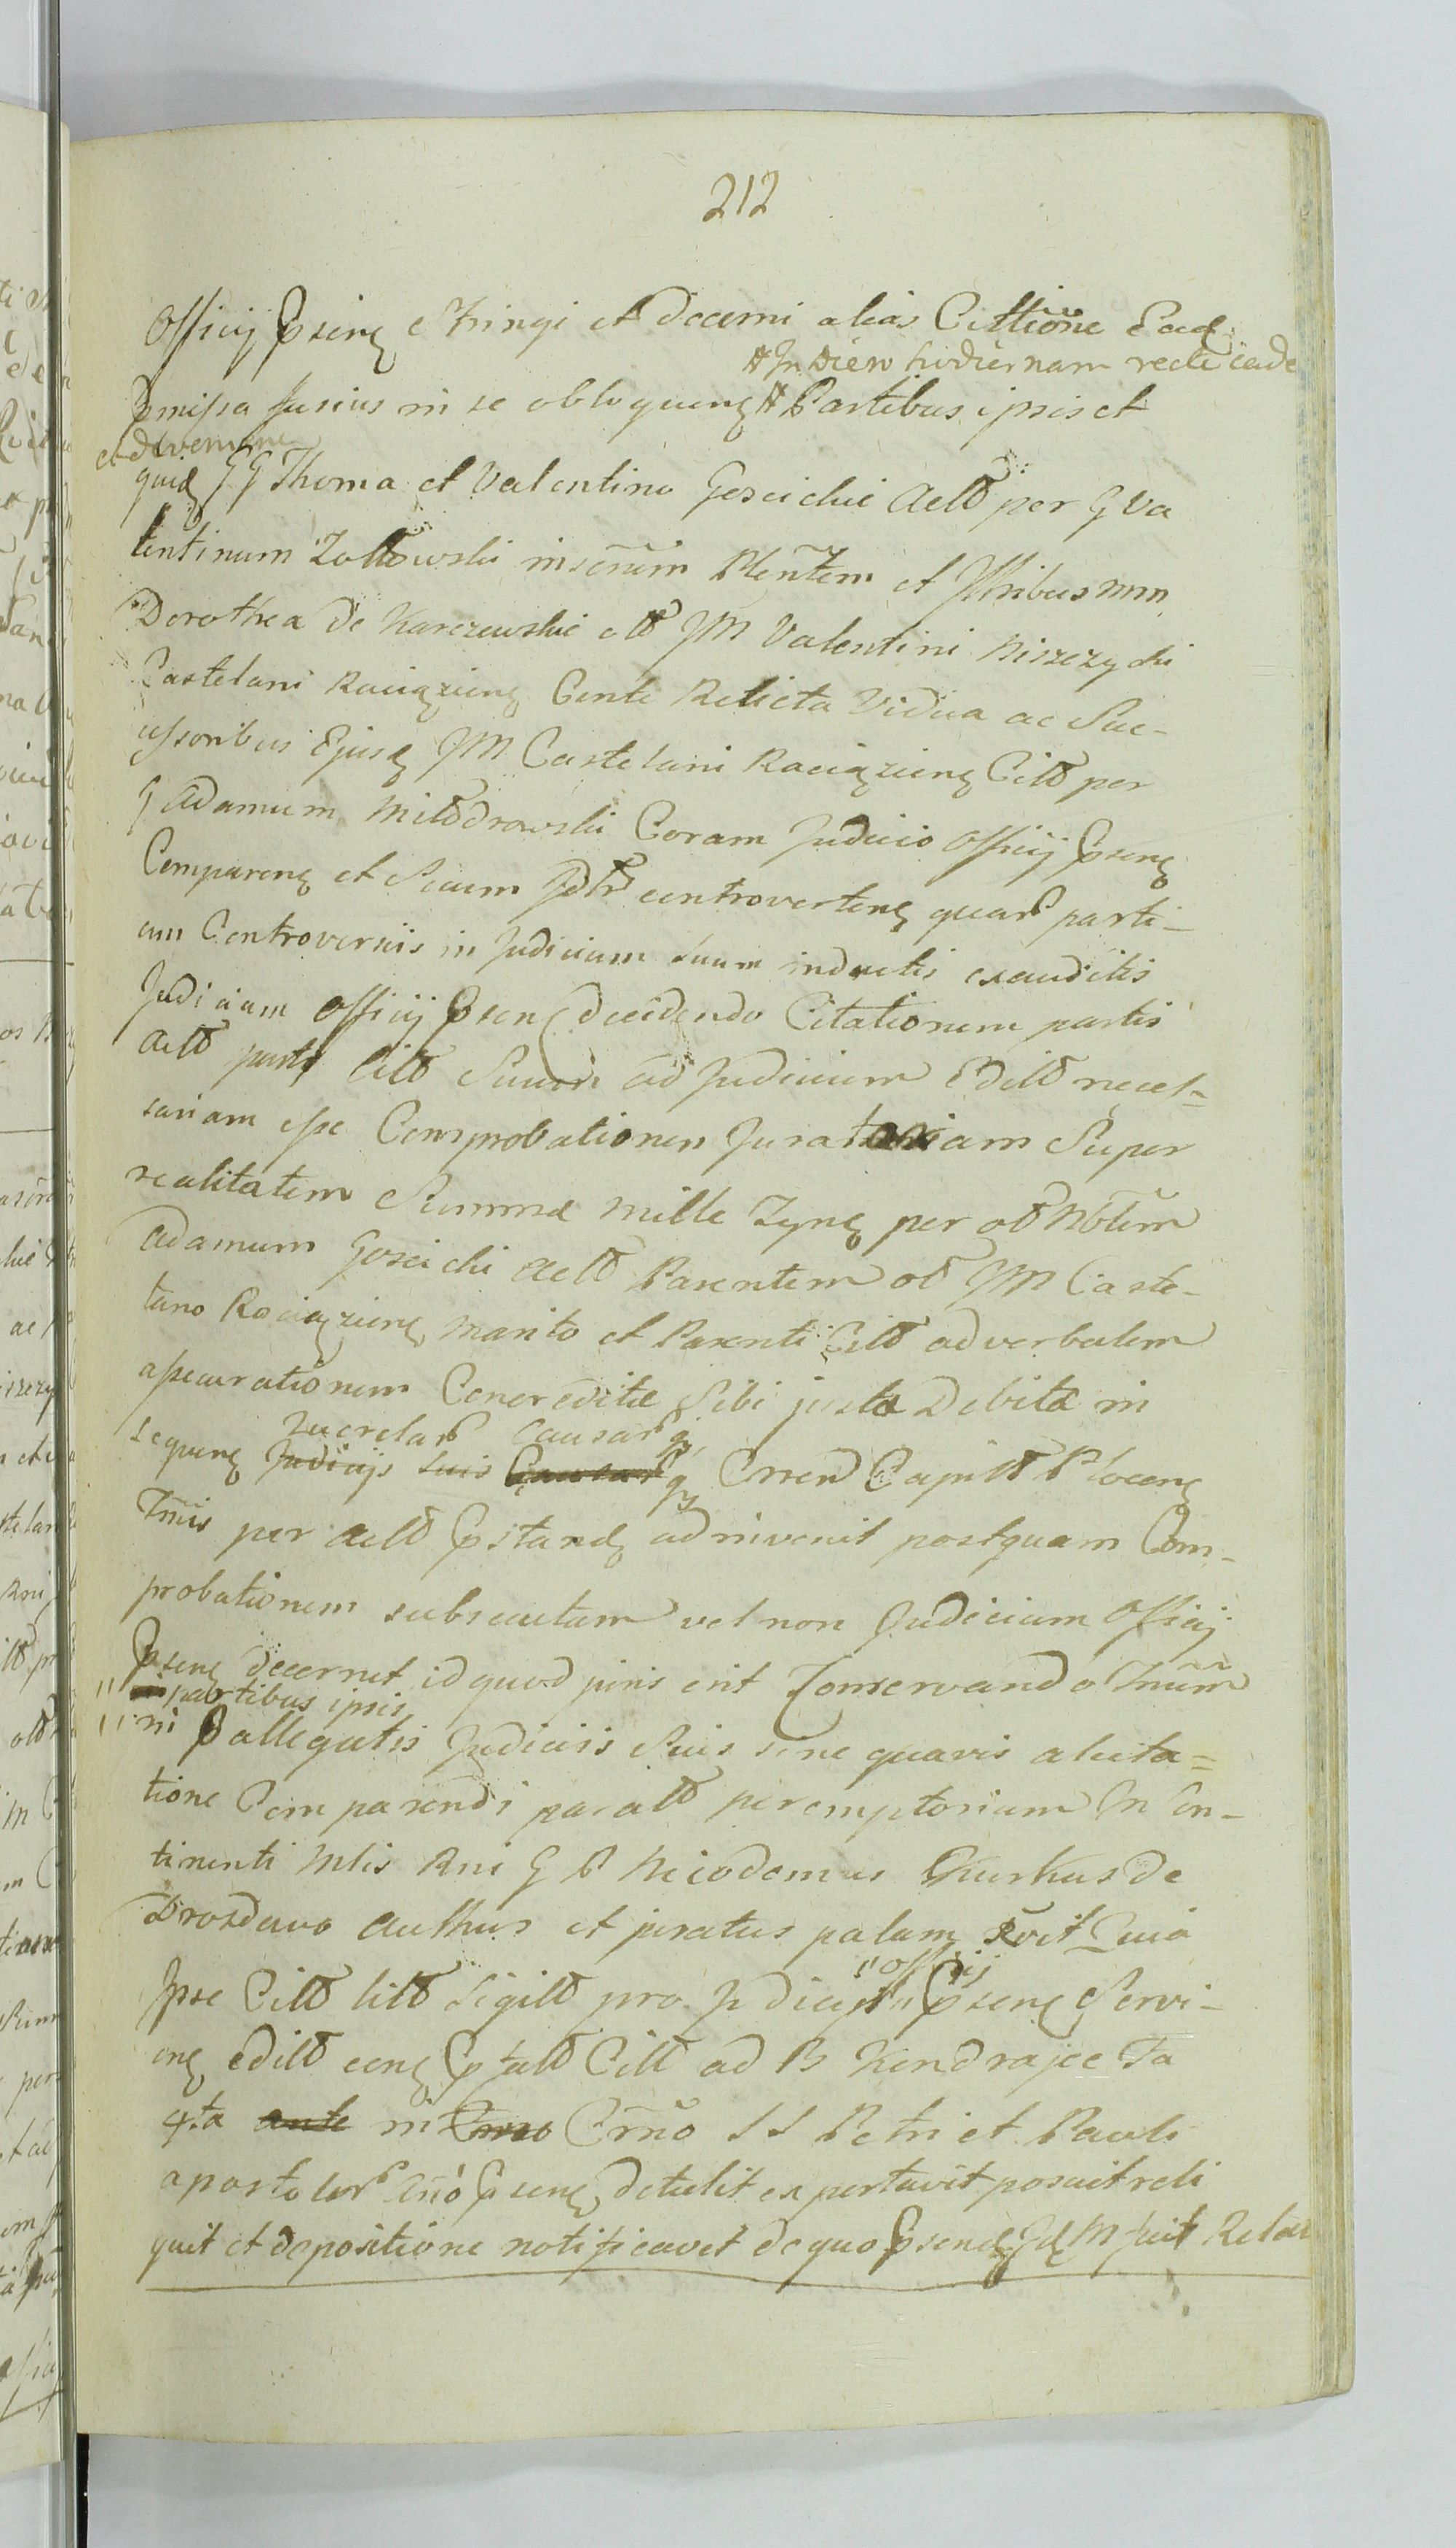 212
Officij Pseng Stringi et Decerni alias Cittione Ead
# In Diem hodiernam recte cade
Pmissa fusius in se obloqueng # Partibus ipsis et
et devenien
quid GG Thoma et Valentino Goscickie Actt per G Va
lentinum Zołtowski inserum Plentem et Mribus mm
Dorothea de Karczewskie ott JM Valentini Niszczycki
Castelani Raciązieng Cente Relicta Vidua ac Suc-
cessoribus Ejusq JM Castelani Raciązieng Citt per
G Adamum Mittdrowski Coram Judicio Officij Pseng
Compareng et Secum Jdtr controverteng quar parti-
um Controversiis in Judicium suum inductis exauditis
Judicium Officij Pseng decidendo Citationem partis
Actt parti Citt Suum ad Judicium Editt neces=
sariam esse Comprobationem Juratoriam Super
realitatem Summæ Mille Zyng per ott Nbtem
Adamum Goscicki Actt Parentem ott JM Caste-
lano Raciązieng Marito et Parenti Citt ad verbalem
assecurationem Concreditæ Sibi justæ Debitæ in
Lucrelar Causar q
sequeng Judicijs suis Causar q Crren Capitt Ploceng
Tmis per Actt Pstand adinvenit postquam Com-
probationem subsecutam vel non Judicium Officij
Pseng decernet id quod juris erit Conservando Tmum
" partibus ipsis
" in Pallegatis Judiciis Suis sine quavis alicta=
tione Comparendi paratt peremptorium In Con-
tinenti Mtis Rni G P Nicodemus Churkus de
Drozdowo Authus et juratus palam rvit Quia
" Officij
Ipse Citt litt Sigitt pro Judicijs " Pseng Servi-
eng editt eong Pstatt Citt ad B Kendrajec Fa
4ta ante in Cmo Crno SS Petri et Pauli
apostolor Ano Pseng detulit exportavit posuit reli
quit et depositione notificavit de quo Psend Jd M fecit Relat